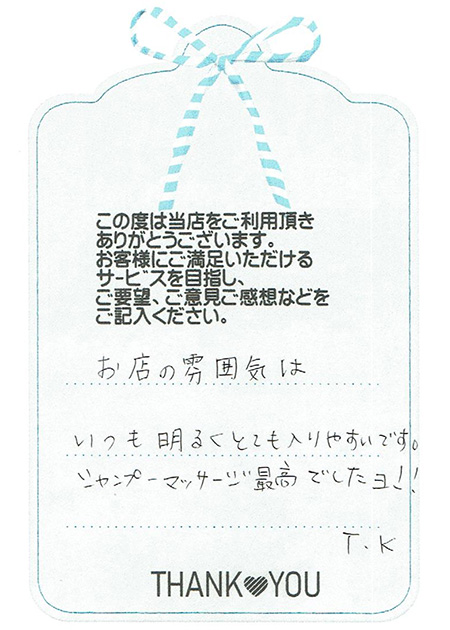 この度は当店をご利用頂き
ありがとうございます。
お客様にご満足いただける
サービスを目指し、
ご要望、ご意見ご感想などを
ご記入ください。
お店の雰囲気は
いつも明るくとても入りやすいです。
シャンプーマッサージ最高でしたヨ!!
T.K
THANK♥YOU